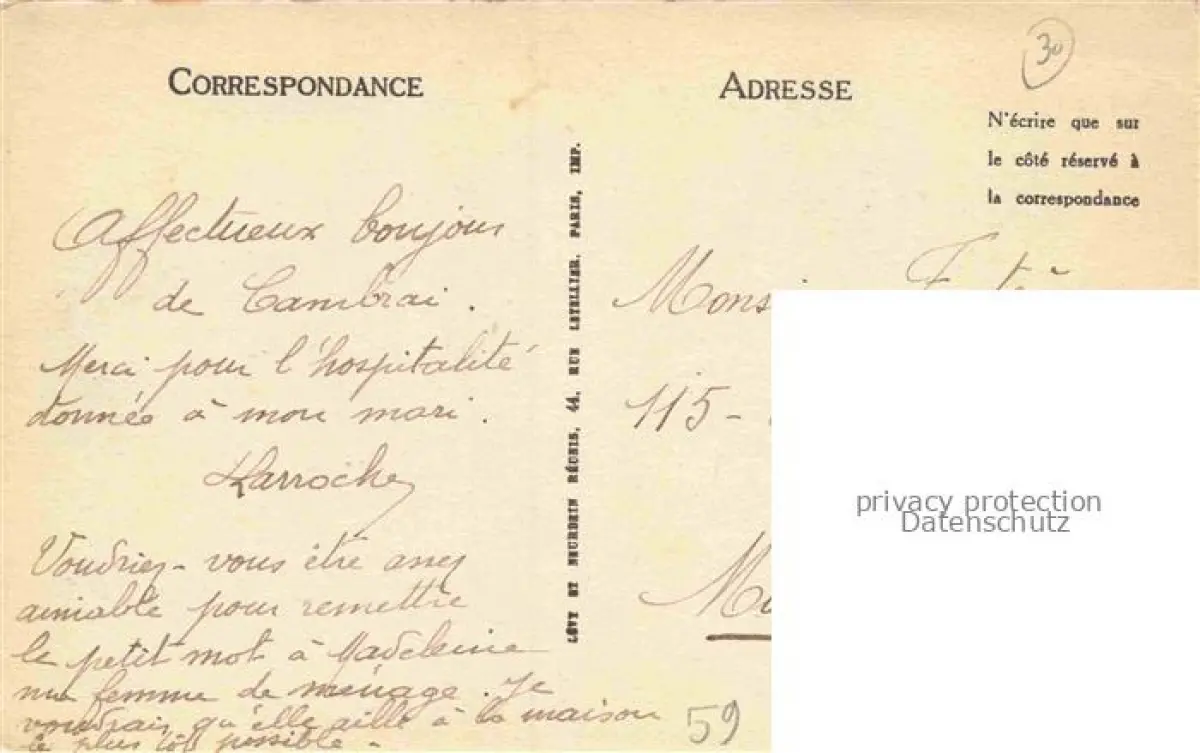 CORRESPONDANCE
Affectueux bonjour
de Cambrai.
Merci pour l'hospitalité
donnée à mon mari.
Larroche
Voudriez-vous être assez
aimable pour remettre
le petit mot à Madeleine
ma femme de ménage. Je
voudrais qu'elle aille à la maison
le plus tôt possible -
LÉVY ET NEURDEIN RÉUNIS, 44, RUE LETELLIER, PARIS, IMP.
ADRESSE
30
N'écrire que sur
le côté réservé à
la correspondance
115-
59
privacy protection
Datenschutz